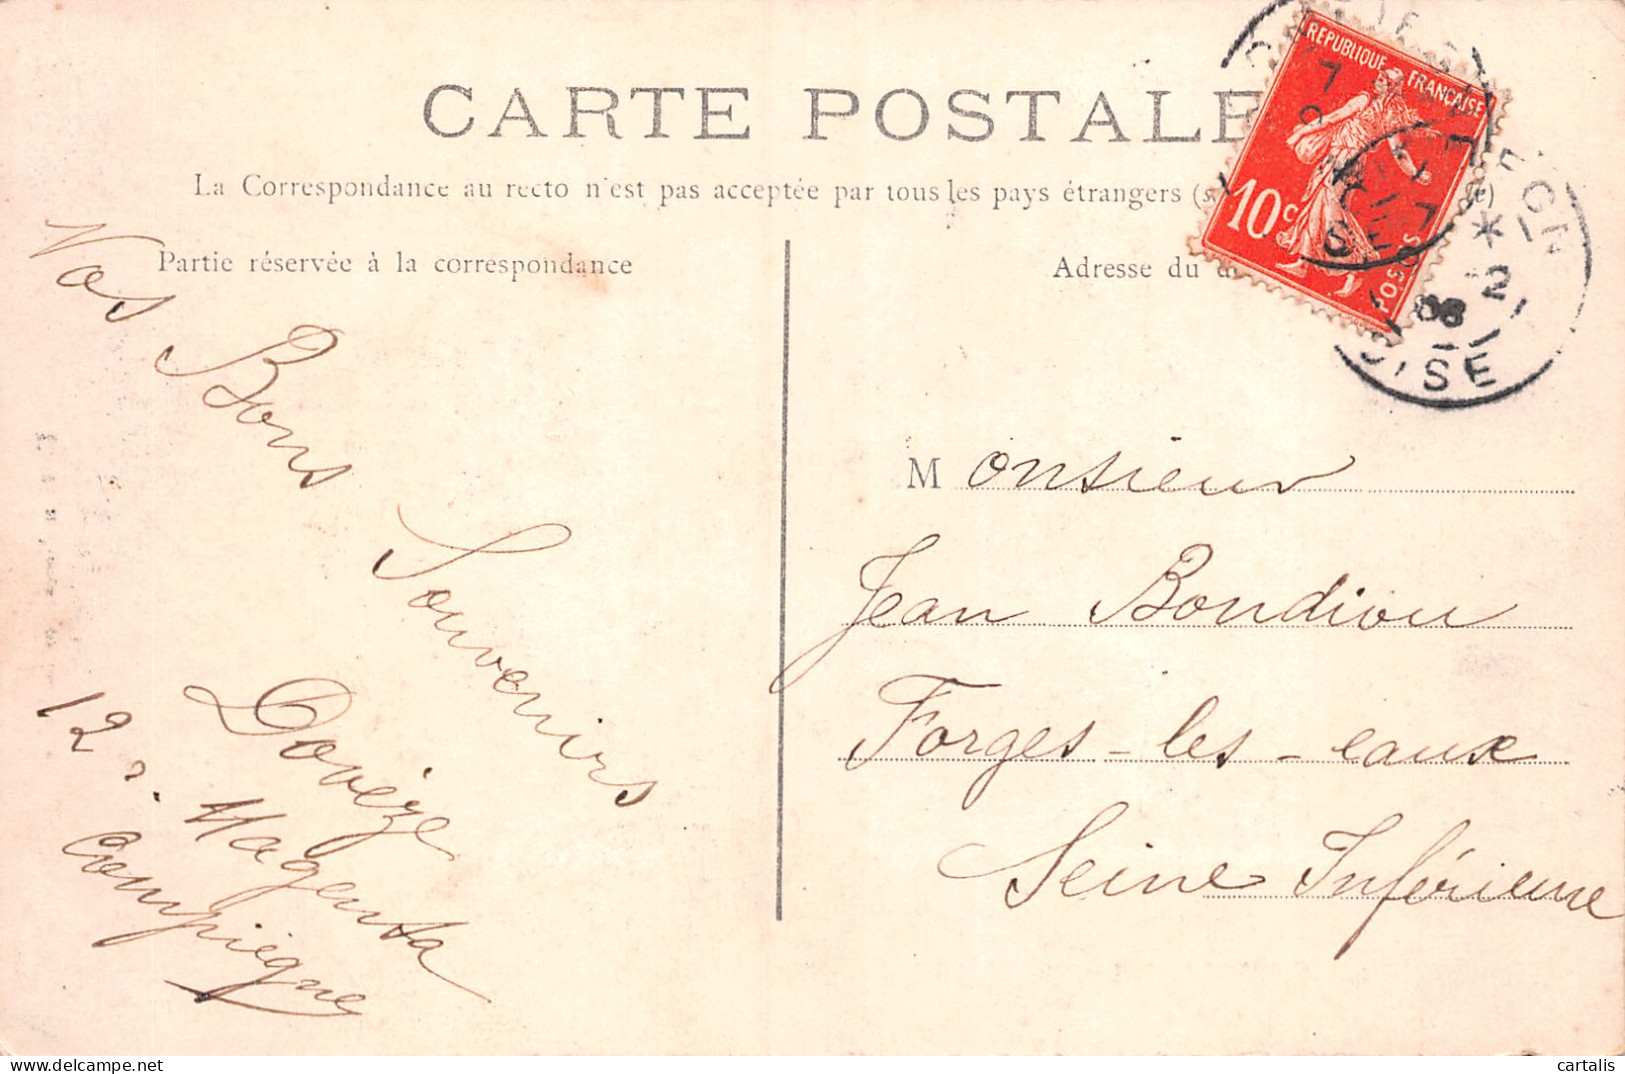 CARTE POSTALE
La Correspondance au recto n'est pas acceptée par tous les pays étrangers
Partie réservée à la correspondance
Adresse du
REPUBLIQUE FRANÇAISE
10c
OISE
Vos Bons Souvenirs
Dovèze
12 r. Magenta
Compiègne
Monsieur
Jean Bondiou
Forges-les-eaux
Seine Inférieure
cartalis